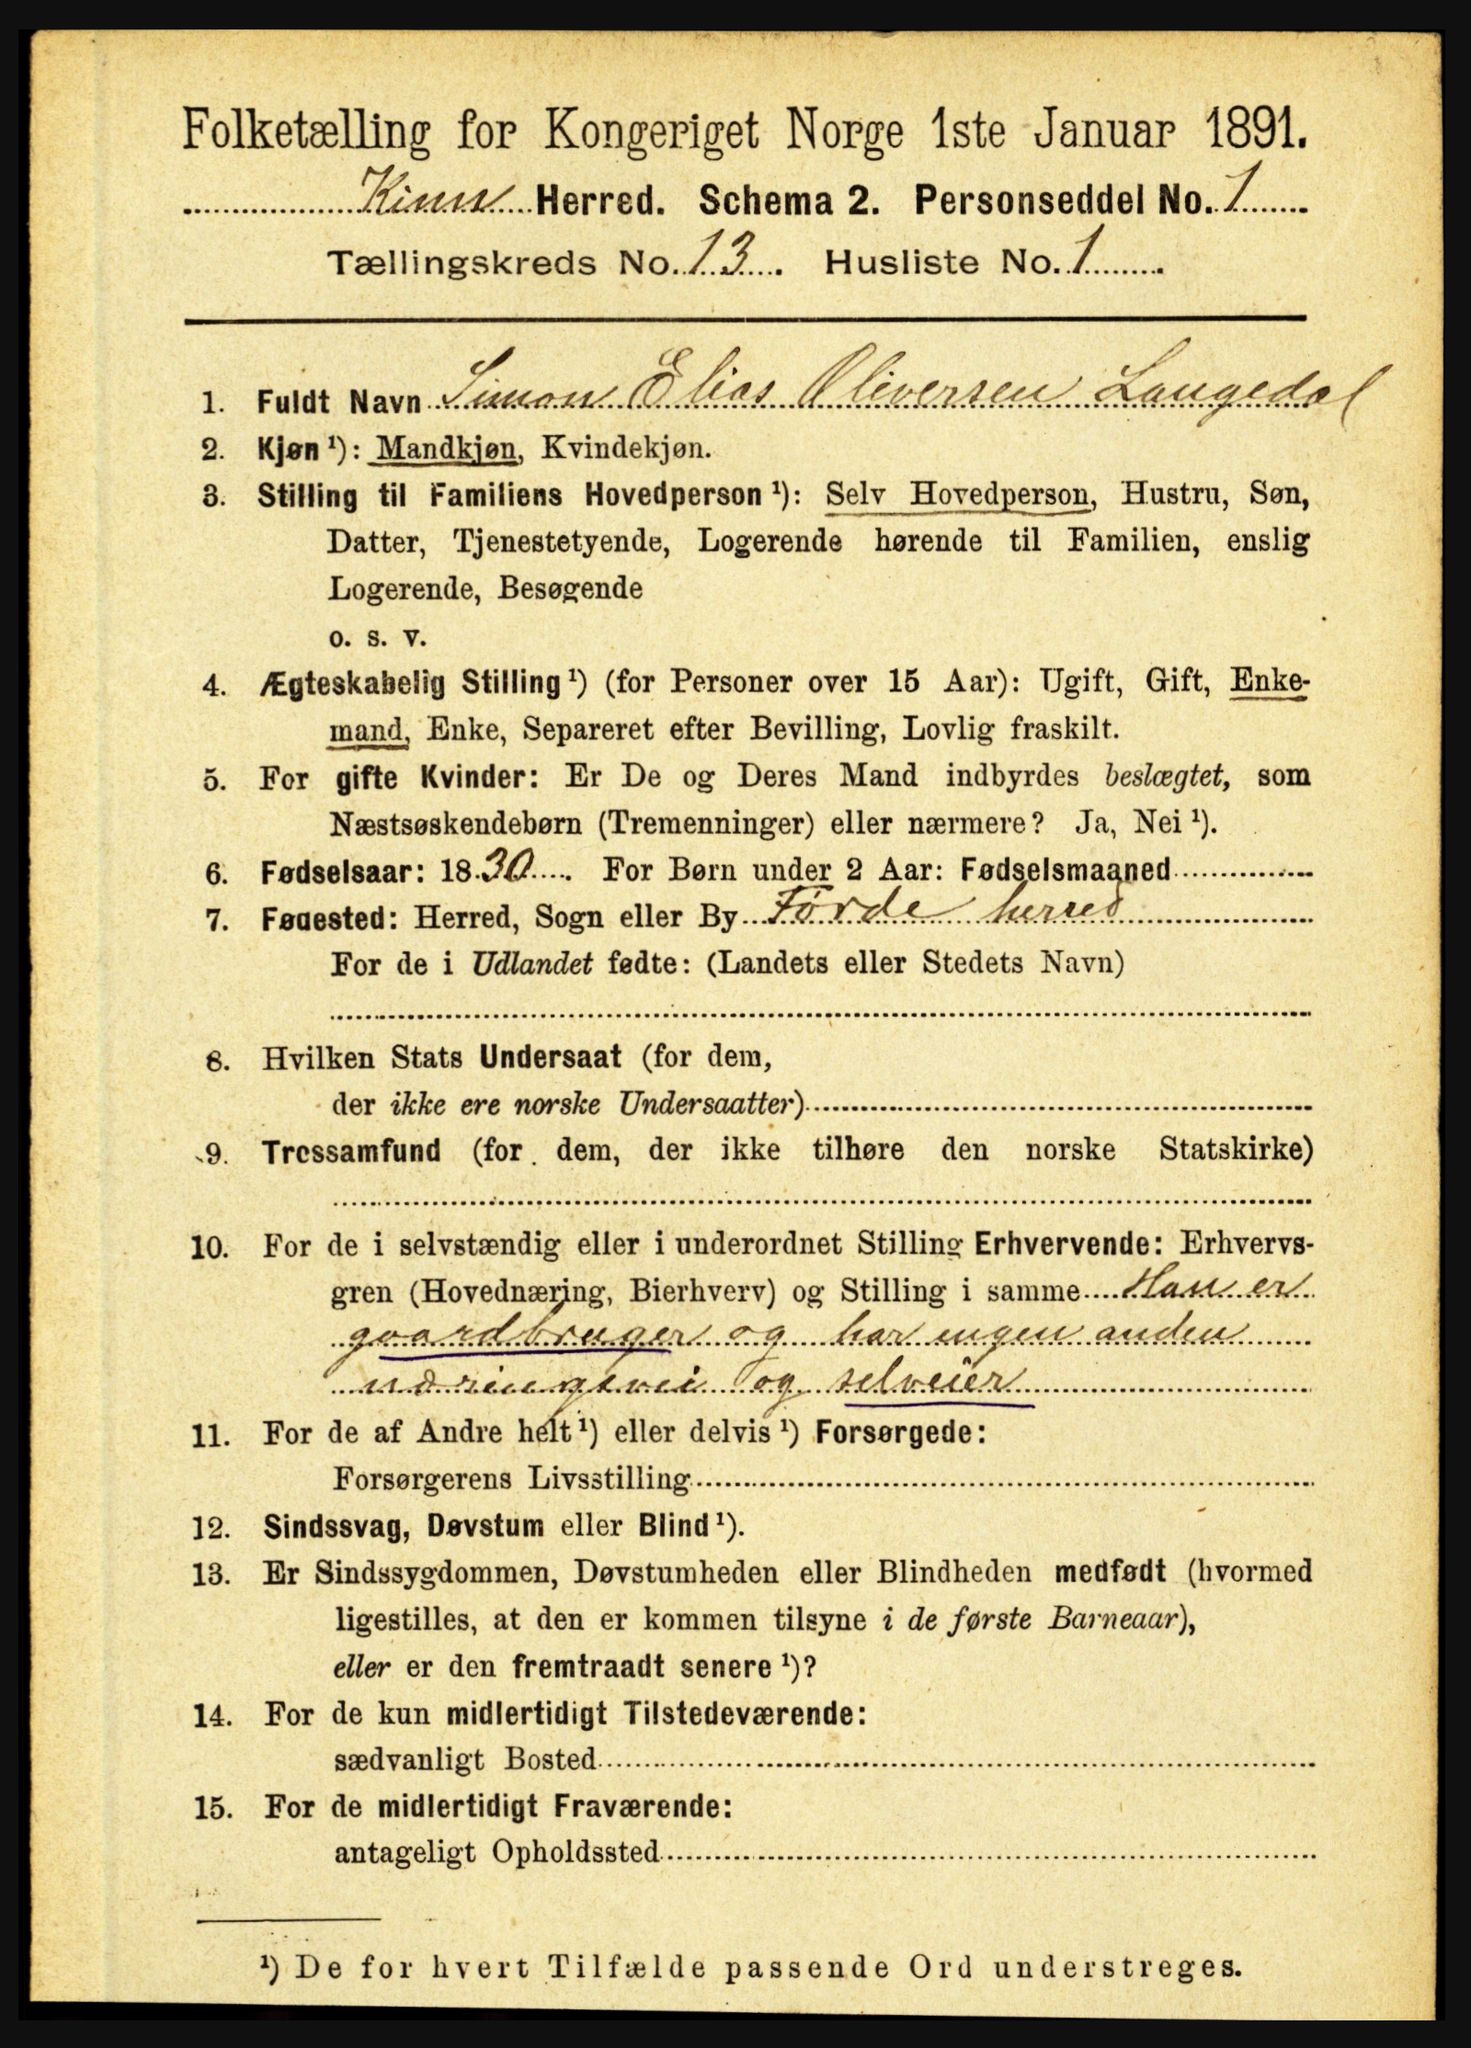 Folketælling for Kongeriget Norge 1ste Januar 1891.
Kinn Herred. Schema 2. Personseddel No. 1
Tællingskreds No. 13. Husliste No. 1
1. Fuldt Navn Simon Elias Oliversen Langedal
2. Kjøn ¹): Mandkjøn, Kvindekjøn.
3. Stilling til Familiens Hovedperson ¹): Selv Hovedperson, Hustru, Søn,
Datter, Tjenestetyende, Logerende hørende til Familien, enslig
Logerende, Besøgende
o. s. v.
4. Ægteskabelig Stilling ¹) (for Personer over 15 Aar): Ugift, Gift, Enke-
mand, Enke, Separeret efter Bevilling, Lovlig fraskilt.
5. For gifte Kvinder: Er De og Deres Mand indbyrdes beslægtet, som
Næstsøskendebørn (Tremenninger) eller nærmere? Ja, Nei ¹).
6. Fødselsaar: 1830. For Børn under 2 Aar: Fødselsmaaned
7. Fødested: Herred, Sogn eller By Förde herred
For de i Udlandet fødte: (Landets eller Stedets Navn)
8. Hvilken Stats Undersaat (for dem,
der ikke ere norske Undersaatter)
9. Trossamfund (for dem, der ikke tilhøre den norske Statskirke)
10. For de i selvstændig eller i underordnet Stilling Erhvervende: Erhvervs-
gren (Hovednæring, Bierhverv) og Stilling i samme Han er
gaardbruger og har ingen anden
næringsvei og selveier
11. For de af Andre helt ¹) eller delvis ¹) Forsørgede:
Forsørgerens Livsstilling
12. Sindssvag, Døvstum eller Blind ¹).
13. Er Sindssygdommen, Døvstumheden eller Blindheden medfødt (hvormed
ligestilles, at den er kommen tilsyne i de første Barneaar),
eller er den fremtraadt senere ¹)?
14. For de kun midlertidigt Tilstedeværende:
sædvanligt Bosted
15. For de midlertidigt Fraværende:
antageligt Opholdssted
¹) De for hvert Tilfælde passende Ord understreges.